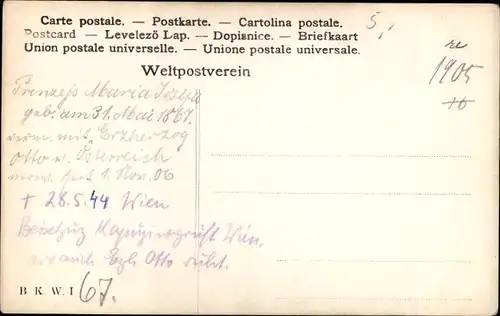 Carte postale. — Postkarte. — Cartolina postale.
Postcard — Levelező Lap. — Dopisnice. — Briefkaart
Union postale universelle. — Unione postale universale.
Weltpostverein
5,
1905
Prinzess Maria Josefa
geb. am 31. Mai 1867.
verm. mit Erzherzog
Otto v. Österreich
verw. seit 1. Nov. 06
+ 28.5.44 Wien
Kapuzinergruft Wien.
wo auch Ezh. Otto ruht.
B. K. W. I 67.